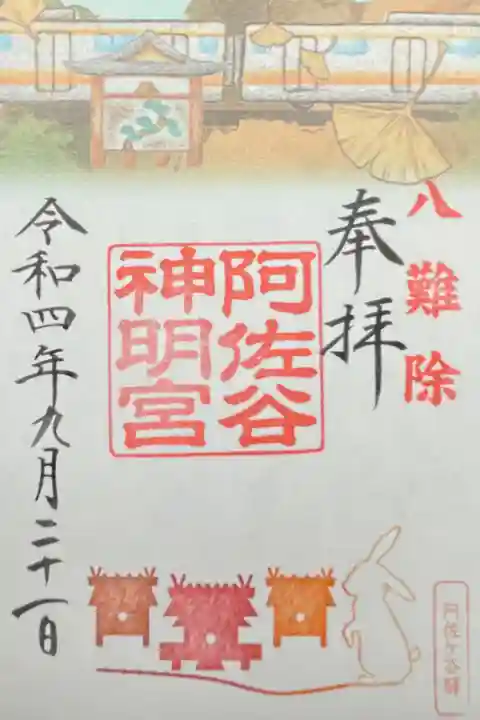 八難除
奉拝
阿佐谷
神明宮
令和四年九月二十一日
阿佐ケ谷驛